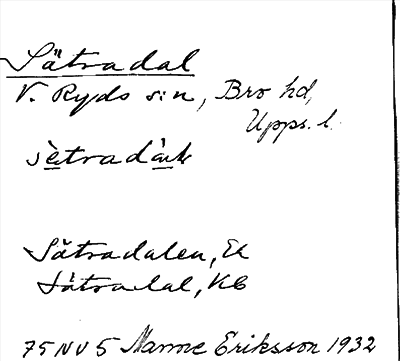 Sätradal
V. Ryds sn, Bro hd,
Upps. l.
sètradàɫ
Sätradalen, Ek
Sätradal, KB
75 NV 5 Manne Eriksson 1932